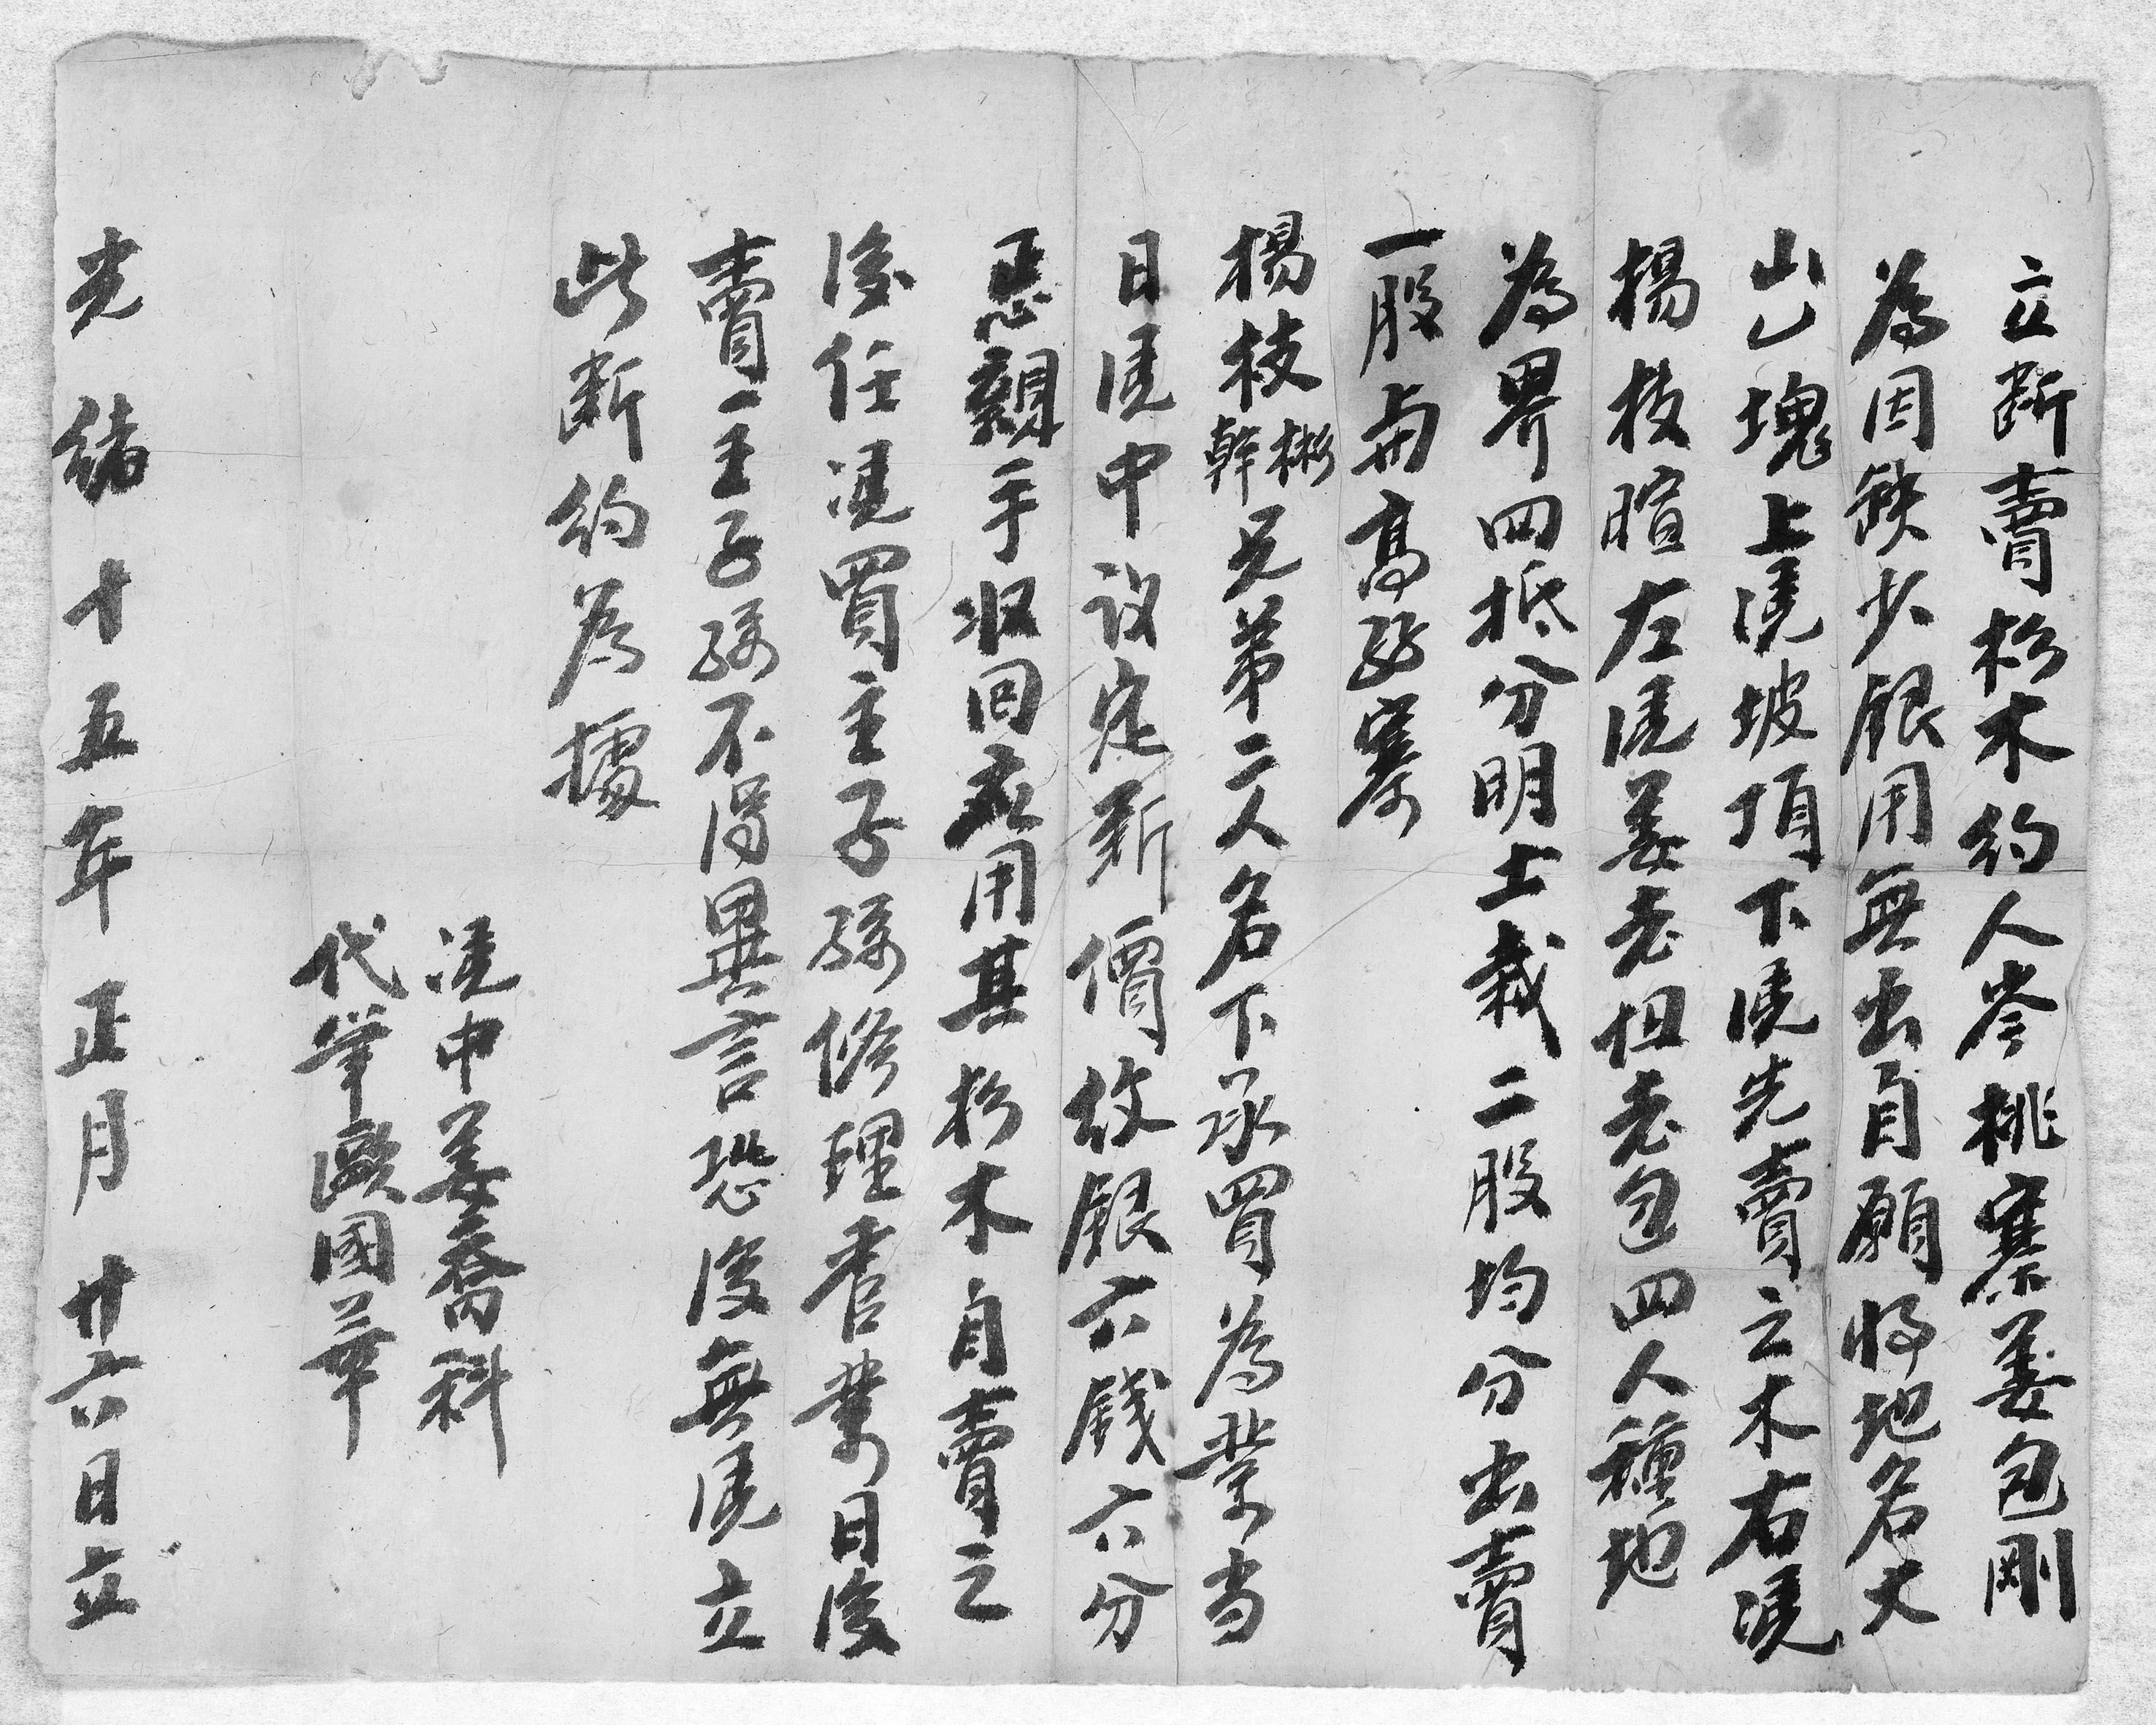 立断賣杉木約人岑桃寨姜包剛
為因缺少銀用無出自願将地名大
山乚塊上凴坡頂下凴先賣之木右凴
楊枝暄左凴姜老但老包四人種地
為界四抵分明土栽二股均分出賣
一股与髙  寨
楊枝彬幹兄弟二人名下承買為業当
日凴中议定断價纹銀六錢六分
悪親手收回应用其杉木自賣之
後任凴買主子孫修理管業日後
賣主子孫不得異言恐後無凴立
此断約為據
凴中姜喬科
代筆歐國華
光緒十五年正月廿六日立